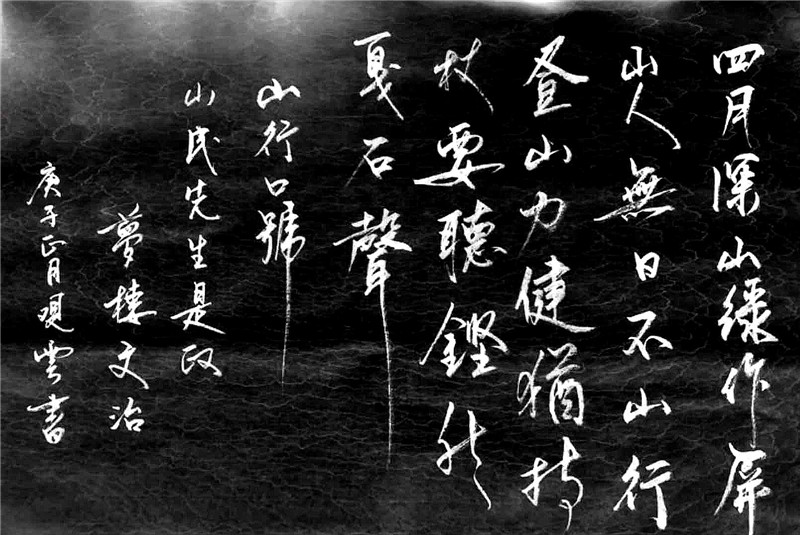 四月深山綠作屏
山人無日不山行
登山力健猶持
杖要聽鏗然
戛石聲
山行口號
山民先生是政
夢樓文治
庚子正月觀雲書